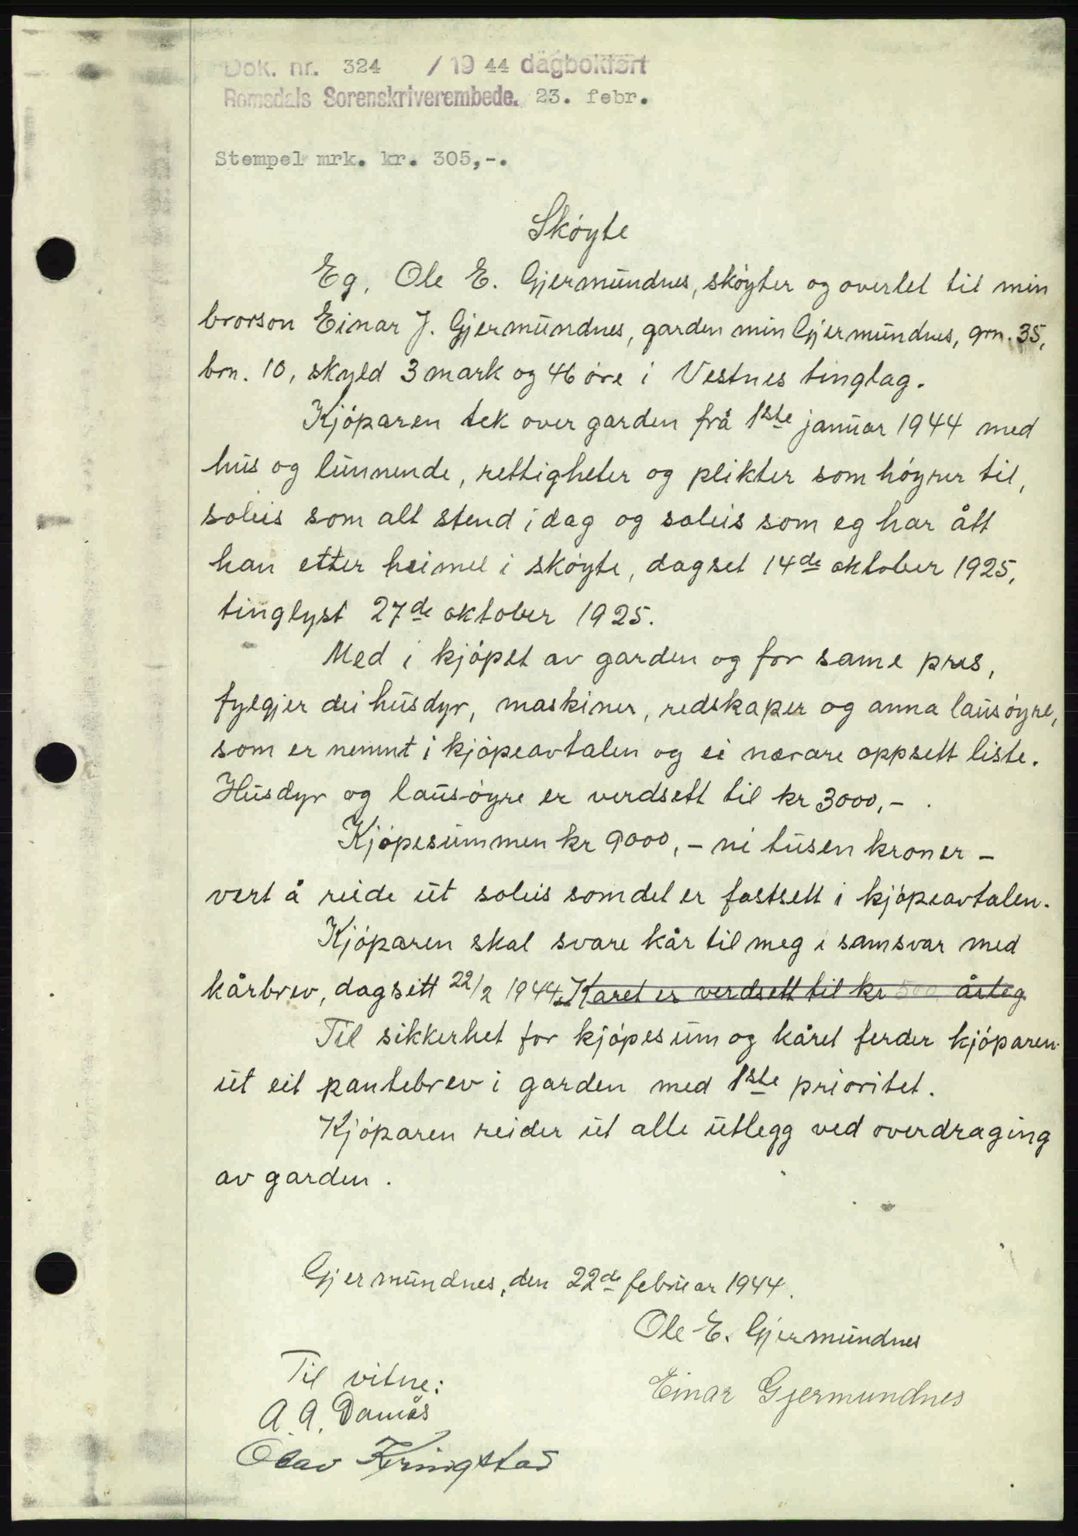 Dok. nr. 324 / 19 44 dagbokført
Romsdals Sorenskriverembede. 23. febr.
Stempel mrk. kr. 305,-.
Skøyte
Eg, Ole E. Gjermundnes, skøyter og overlet til min
brorson Einar J. Gjermundnes, garden min Gjermundnes, grn. 35,
brn. 10, skyld 3 mark og 46 øre i Vestnes tinglag.
Kjøparen tek over garden frå 1ste januar 1944 med
hus og lunnende, rettigheter og plikter som høyrer til,
soleis som alt stend i dag og soleis som eg har ått
han etter heimel i skøyte, dagset 14de oktober 1925,
tinglyst 27de oktober 1925.
Med i kjøpet av garden og for same pris,
fylgjer dei husdyr, maskiner, redskaper og anna lausøyre,
som er nemnt i kjøpeavtalen og ei nærare oppsett liste.
Husdyr og lausøyre er verdsett til kr 3000,- .
Kjøpesummen kr 9000,- ni tusen kroner -
vert å reide ut soleis som det er fastsett i kjøpeavtalen.
Kjøparen skal svare kår til meg i samsvar med
kårbrev, dagsett 22/2 1944. Kåret er verdsett til kr 500 årleg
Til sikkerhet for kjøpesum og kåret ferder kjøparen
ut eit pantebrev i garden med 1ste prioritet.
Kjøparen reider ut alle utlegg ved overdraging
av garden .
Gjermundnes, den 22de februar 1944.
Ole E. Gjermundnes
Einar Gjermundnes
Til vitne:
A. A. Damås
Olav Kringstad